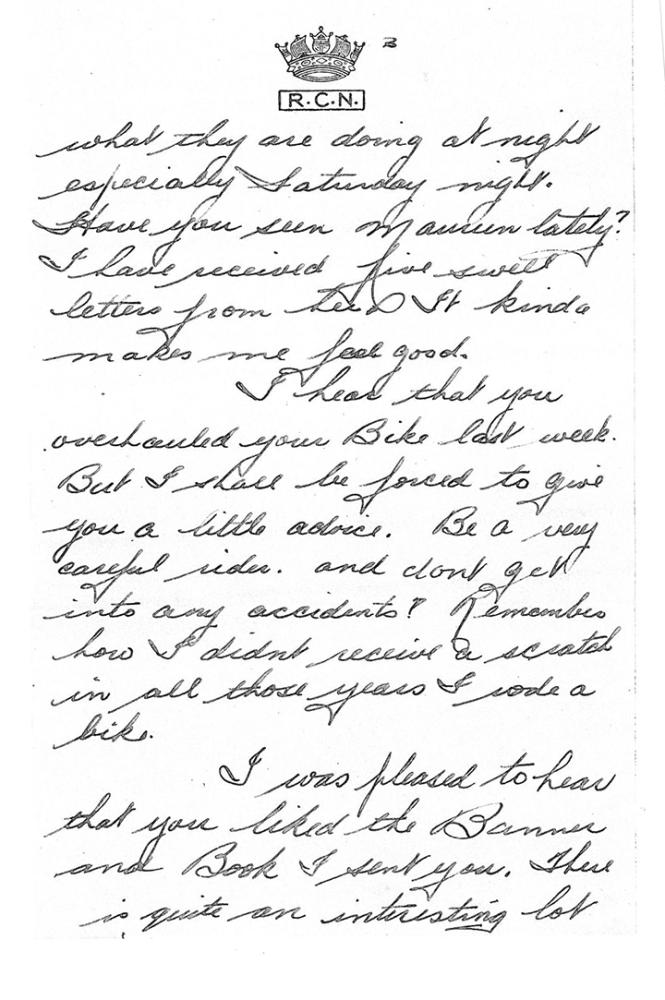 3
R.C.N.
what they are doing at night
especially Saturday night.
Have you seen Maureen lately?
I have received five sweet
letters from her. It kinda
makes me feel good.
I hear that you
overhauled your Bike last week.
But I shall be forced to give
you a little advice. Be a very
careful rider. and dont get
into any accidents? Remember
how I didnt receive a scratch
in all those years I rode a
bike.
I was pleased to hear
that you liked the Banner
and Book I sent you. There
is quite an interesting lot